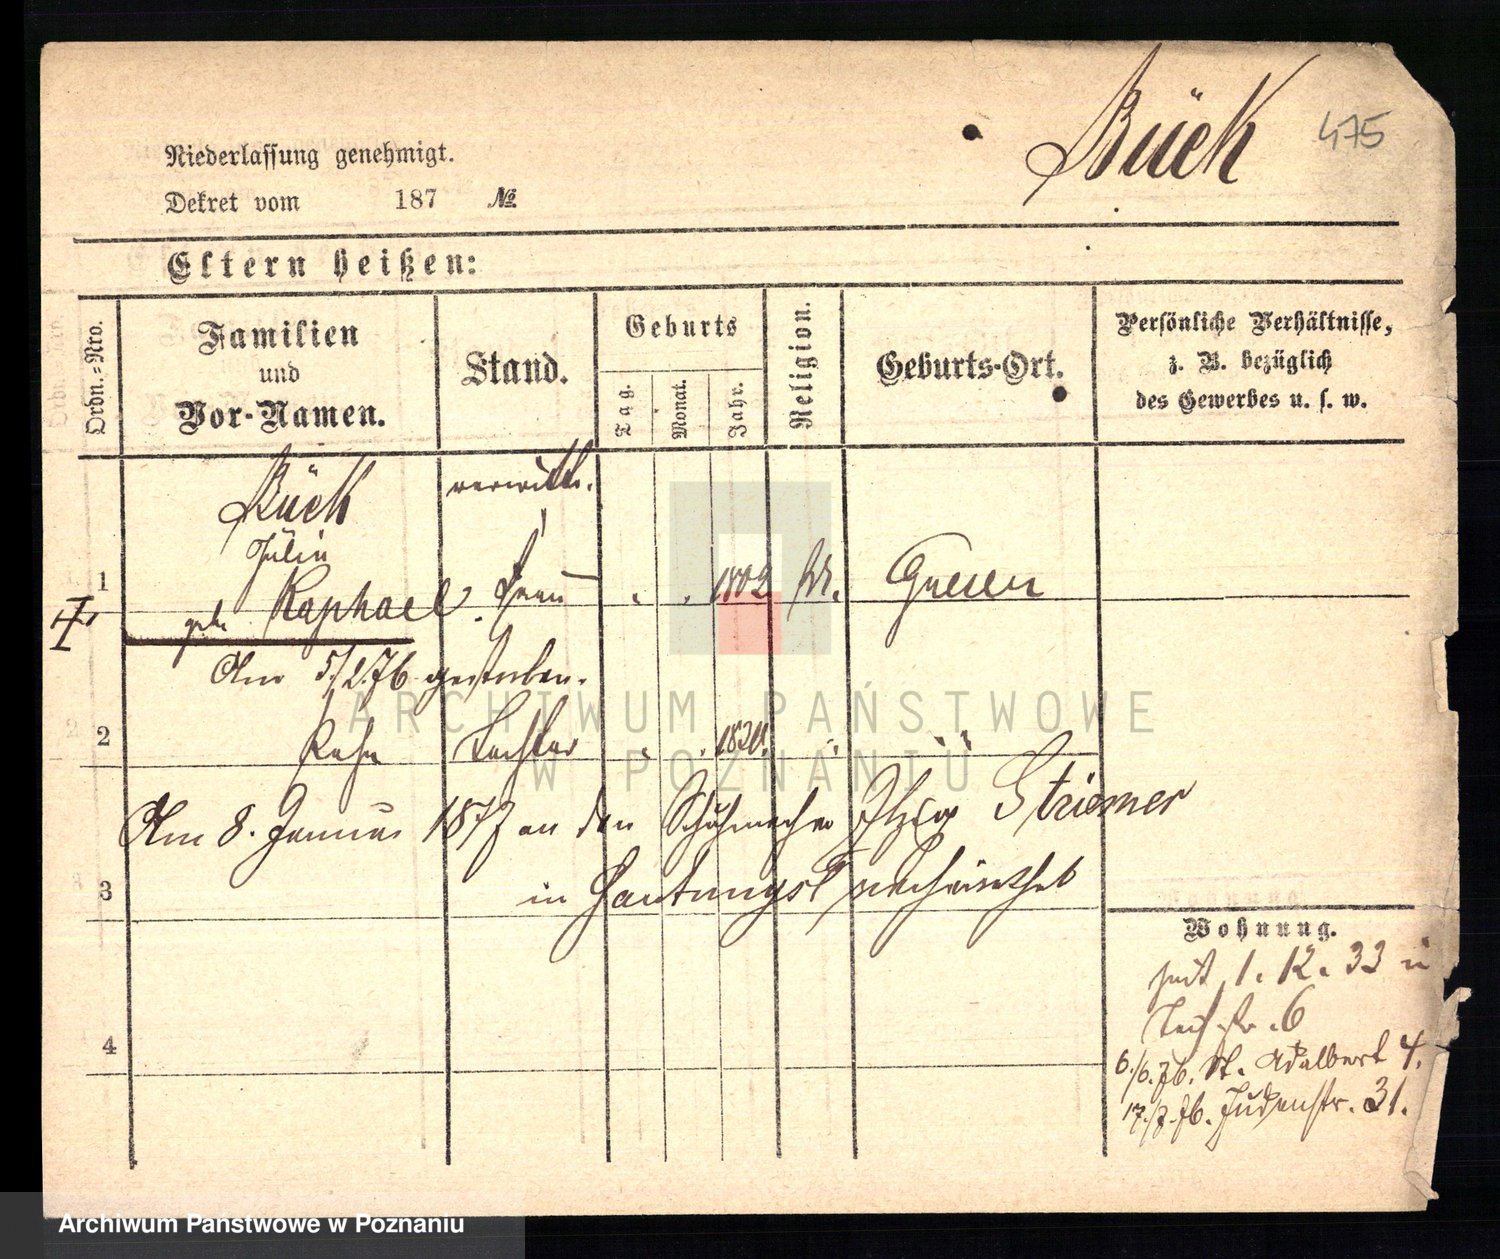 Bück 475
Niederlassung genehmigt.
Dekret vom 187 №
Eltern heißen:
Ordn.-Nro.
Familien
und
Vor-Namen.
Stand.
Geburts
Tag.
Monat.
Jahr.
Religion.
Geburts-Ort.
Persönliche Verhältnisse,
z. B. bezüglich
des Gewerbes u. s. w.
Bück verwittw.
Julie
1 geb. Raphael Frau 1802 Gnesen
Am 5/2.76 gestorben.
2 Tochter
Am 8. Januar 1877 an den Schuhmacher Itzig Striemer
3 in verheirathet
4
Wohnung.
seit 1. 12. 33
6
6./6.76. St. Adalbert 4.
17./7.76. Judenstr. 31.
ARCHIWUM PAŃSTWOWE
W POZNANIU
Archiwum Państwowe w Poznaniu